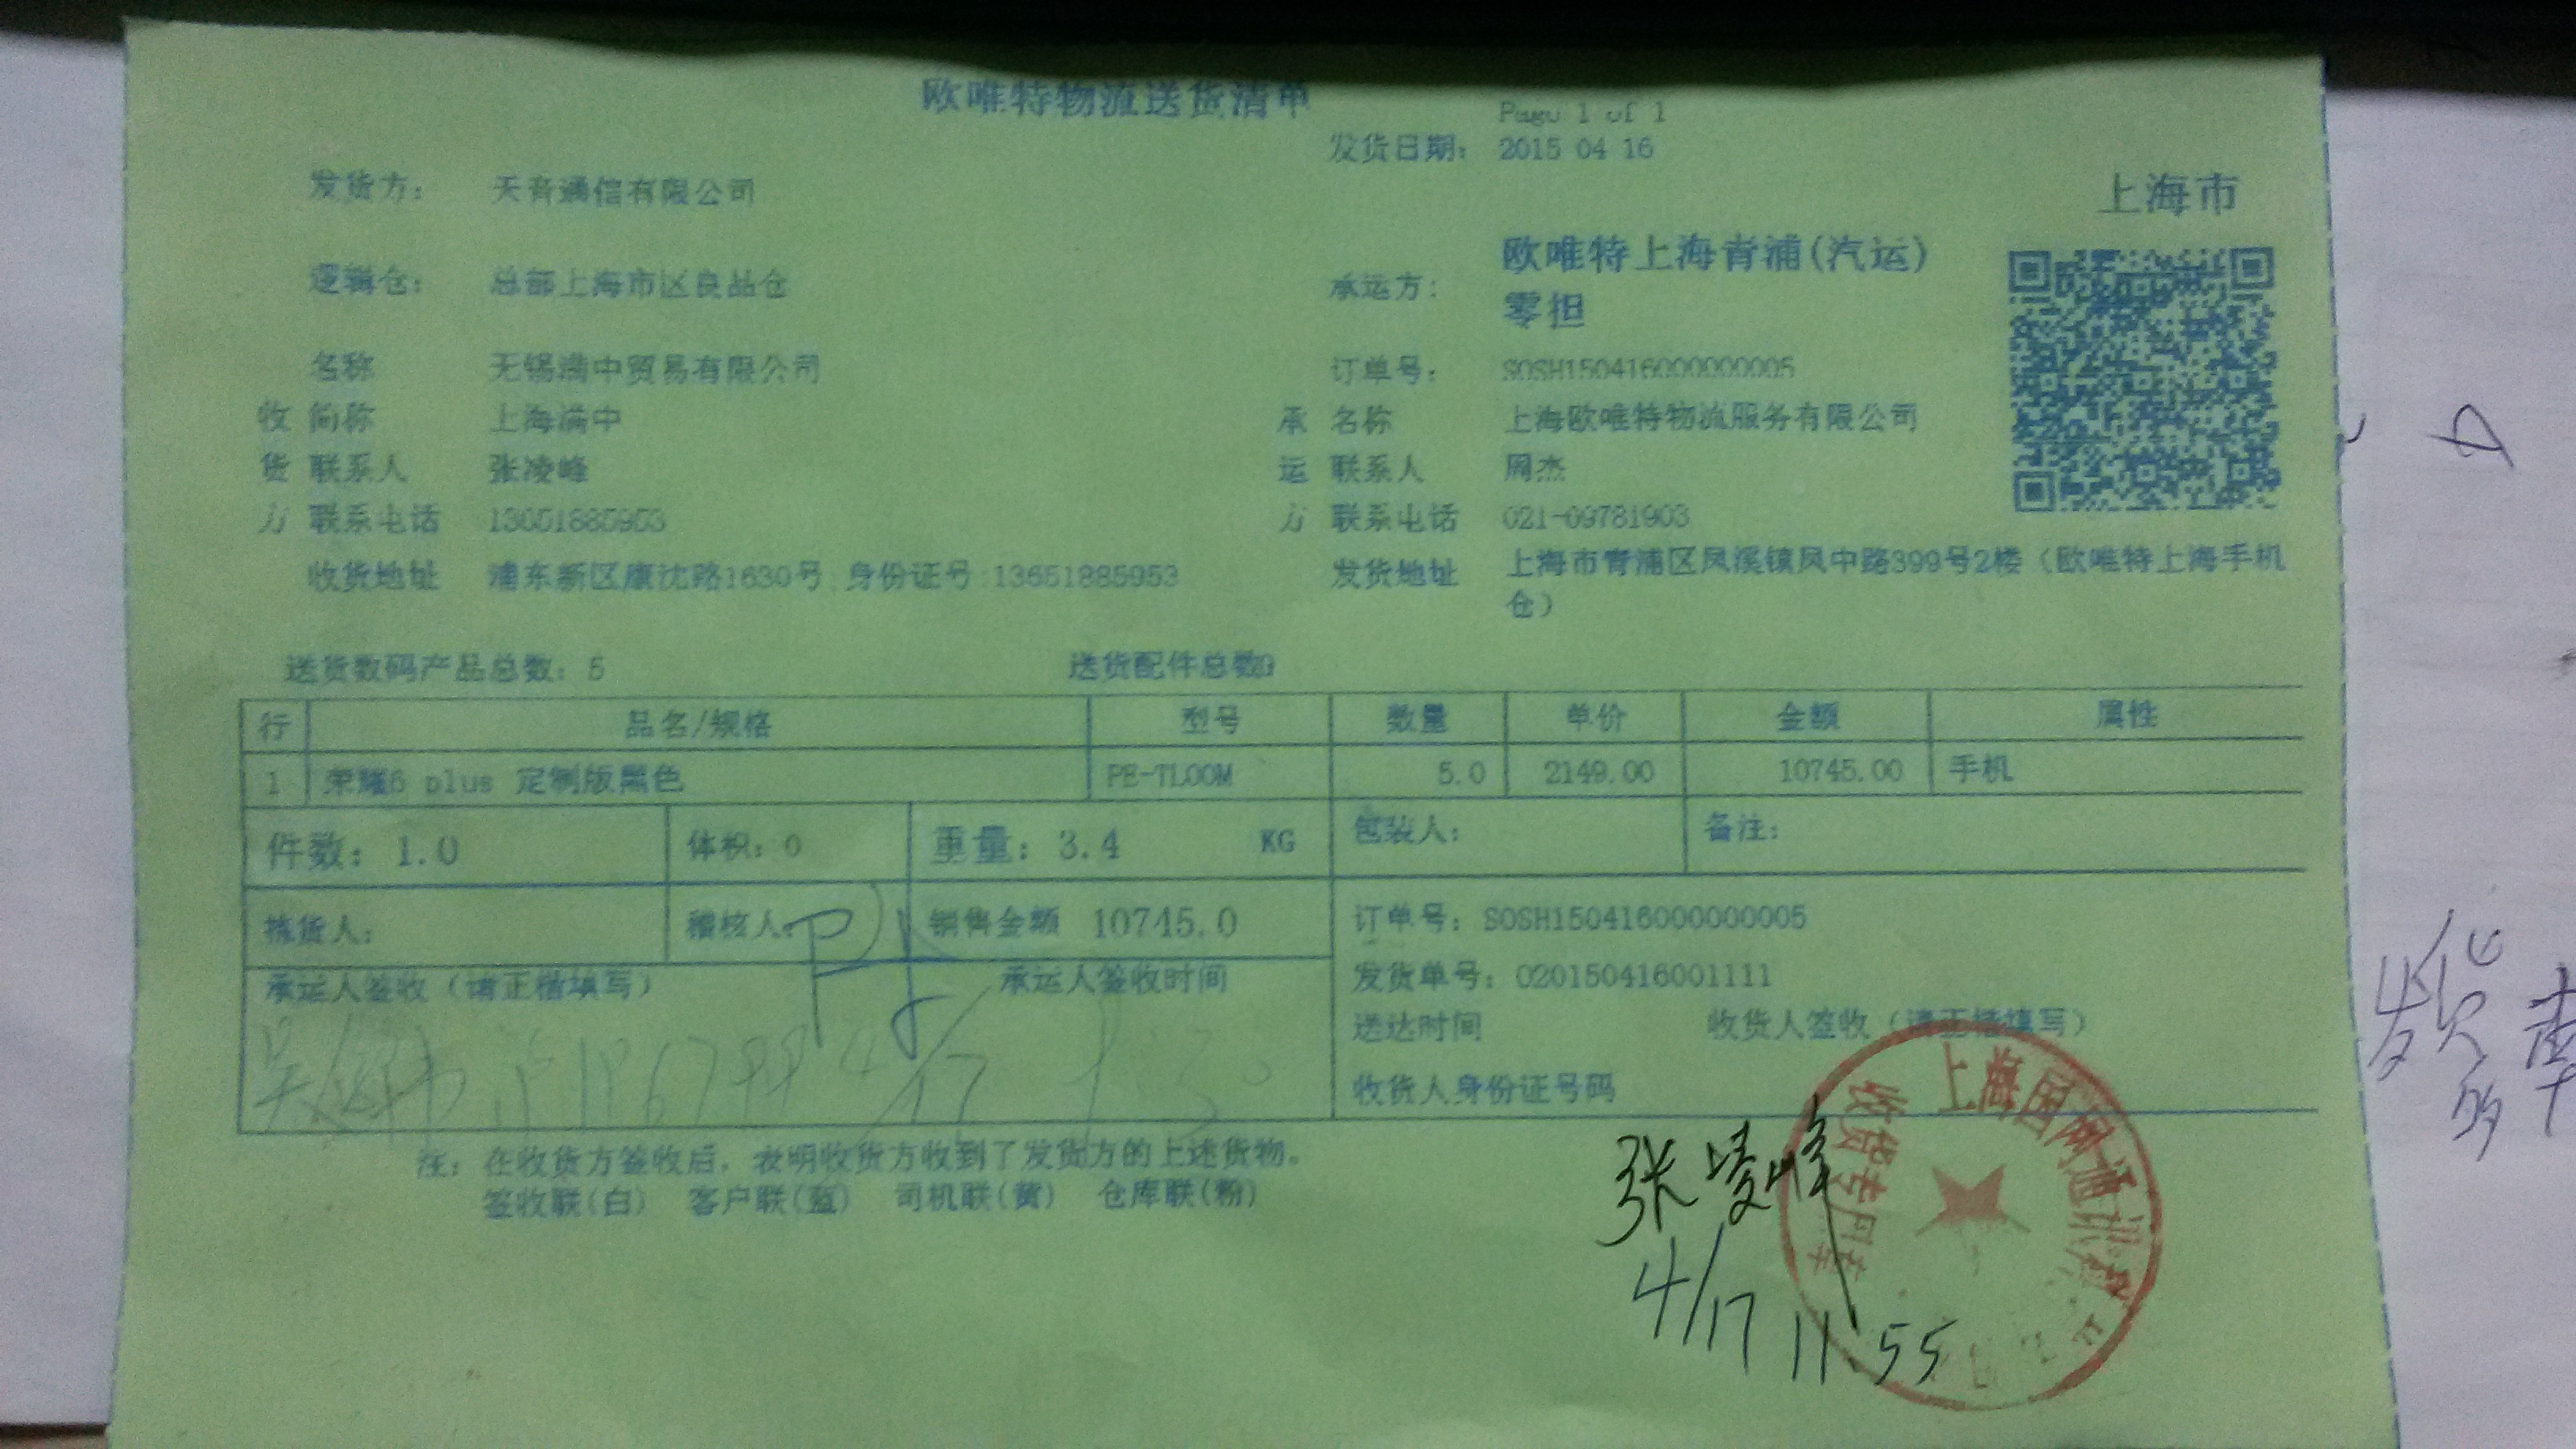 欧唯特物流送货清单
Page 1 of 1
发货日期: 2015 04 16
发货方: 天音通信有限公司
上海市
逻辑仓: 总部上海市区良品仓
承运方: 欧唯特上海青浦(汽运)
零担
名称 无锡满中贸易有限公司
订单号: SOSH150416000000005
收 简称 上海满中
承 名称 上海欧唯特物流服务有限公司
货 联系人 张凌峰
运 联系人 周杰
方 联系电话 13651885953
方 联系电话
收货地址 浦东新区康沈路1630号,身份证号:13651885953
发货地址 上海市青浦区凤溪镇凤中路399号2楼（欧唯特上海手机
仓）
送货数码产品总数: 5
送货配件总数0
行 品名/规格 型号 数量 单价 金额 属性
1 荣耀6 plus 定制版黑色 PE-TL00M 5.0 2149.00 10745.00 手机
件数: 1.0 体积: 0 重量: 3.4 KG 包装人: 备注:
拣货人: 稽核人: 销售金额 10745.0
订单号: SOSH150416000000005
承运人签收（请正楷填写） 承运人签收时间
发货单号: 020150416001111
送达时间 收货人签收（请正楷填写）
4/17
收货人身份证号码
注: 在收货方签收后，表明收货方收到了发货方的上述货物。
签收联(白) 客户联(蓝) 司机联(黄) 仓库联(粉)
张凌峰
4/17 11:55
收货专用章